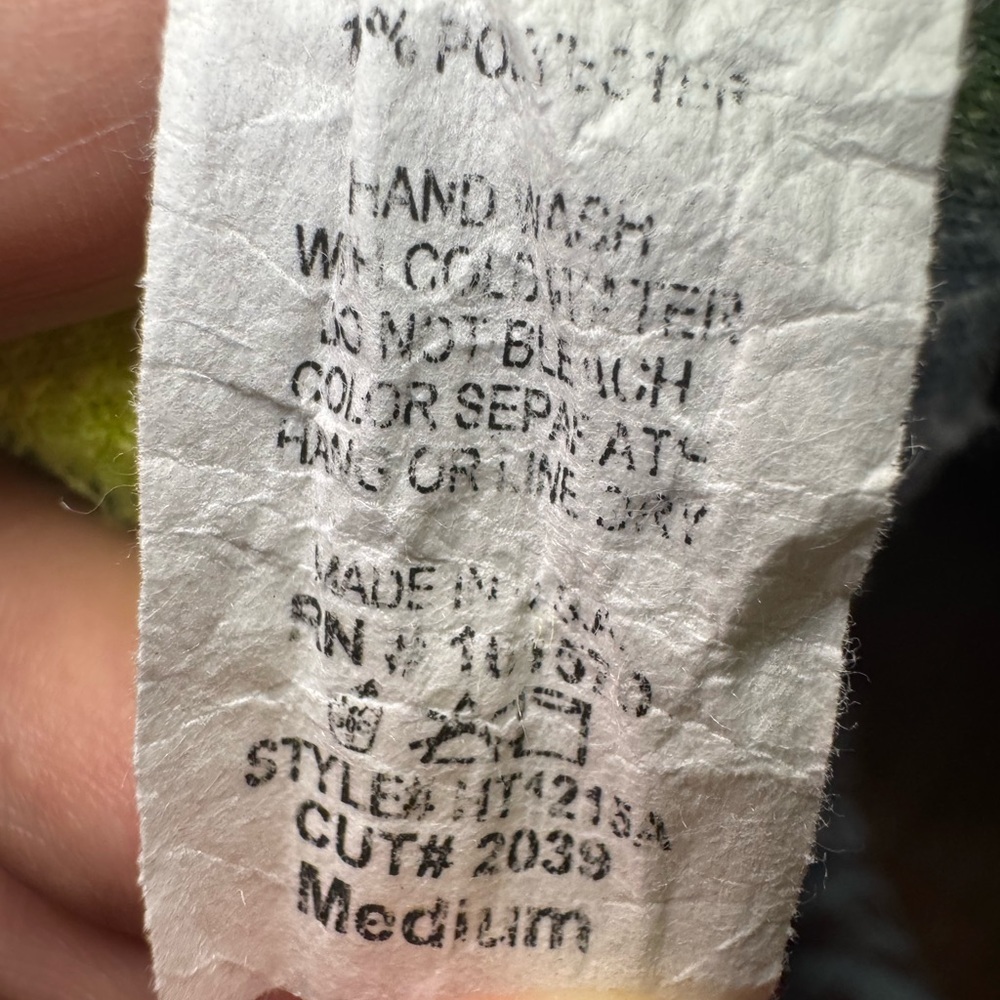 1% POLYESTER
HAND WASH
WITH COLD WATER
DO NOT BLEACH
COLOR SEPARATLY
HANG OR LINE DRY
MADE IN USA
RN #
STYLE# HT1215A
CUT# 2039
Medium